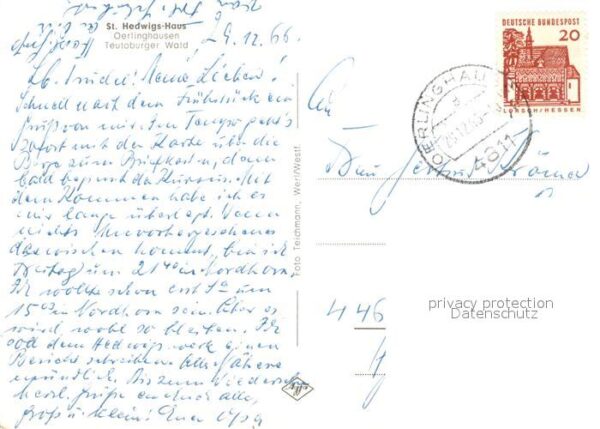 St. Hedwigs-Haus
Oerlinghausen
Teutoburger Wald
29.12.66.
Lb. Trudel! Meine Lieben!
Schnell nach dem Frühstück ein
Gruß von mir. Im Tempo geht's
sofort mit der Karte über die
Berge zum Briefkasten, denn
bald beginnt der Kursus. Mit
dem Kommen habe ich es
mir lange überlegt. Wenn
nichts Unvorhergesehenes
dazwischen kommt, bin ich
Freitag um 21 in Nordhorn.
Ich wollte schon erst Sa um
15 in Nordhorn sein. Aber es
wird wohl so bleiben. Ich
soll dem Hedwigswerk einen
Bericht schreiben. Alles Nähere
mündlich. Bis zum Wiedersehn
herzl. Grüße an Euch alle,
groß u. klein! Eure
Foto Teichmann, Werl/Westf.
Agfa
DEUTSCHE BUNDESPOST
20
LORSCH/HESSEN
OERLINGHAUSEN
4811
An
446
privacy protection
Datenschutz